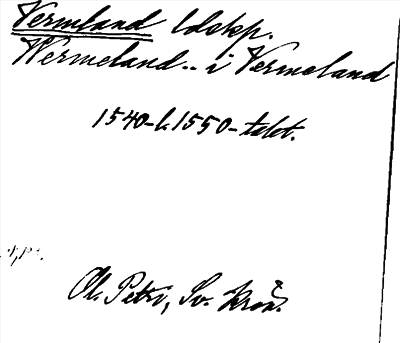 Vermland ldskp.
Wermeland.. i Vermeland
1540-l. 1550-talet.
Ol. Petri, Sv. krön.